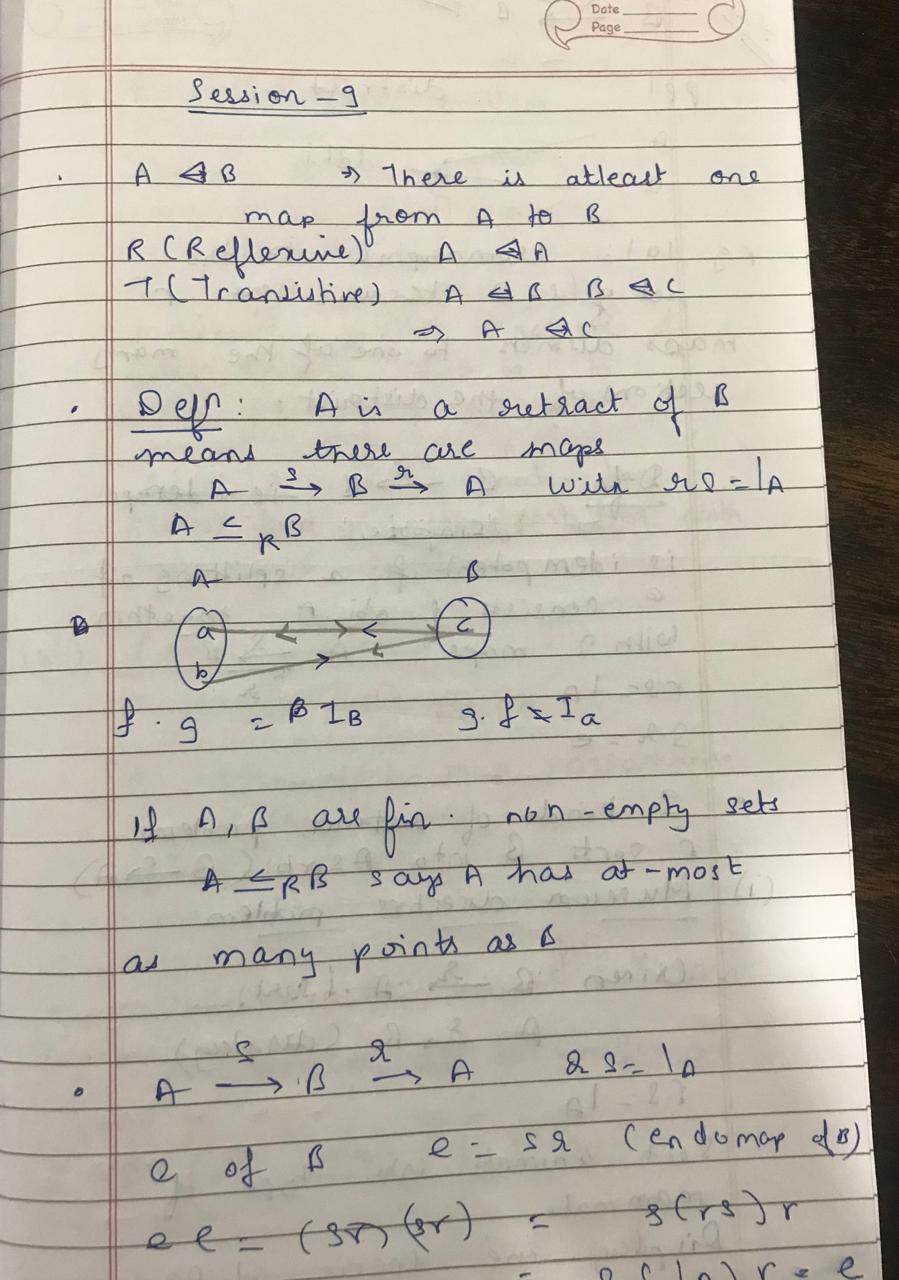 Date
Page
Session - 9
A ◁ B ⇒ There is atleast one
map from A to B
R (Reflexive) A ◁ A
T (Transistive) A ◁ B B ◁ C
⇒ A ◁ C
Defn: A is a retract of B
means there are maps
A →s B →r A with rs = 1A
A ≤R B
A B
a c
b
f . g = IB g. f ≠ Ia
If A, B are fin. non-empty sets
A ≤R B says A has at-most
as many points as B
A →s B →r A rs = 1A
e of B e = sr (endomap of B)
ee = (sr) (sr) = s(rs) r
= s(1A) r = e